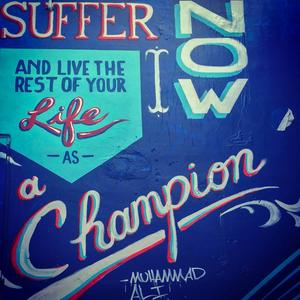 SUFFER NOW
AND LIVE THE
REST OF YOUR
Life
- AS -
a
Champion
-MUHAMMAD
ALI